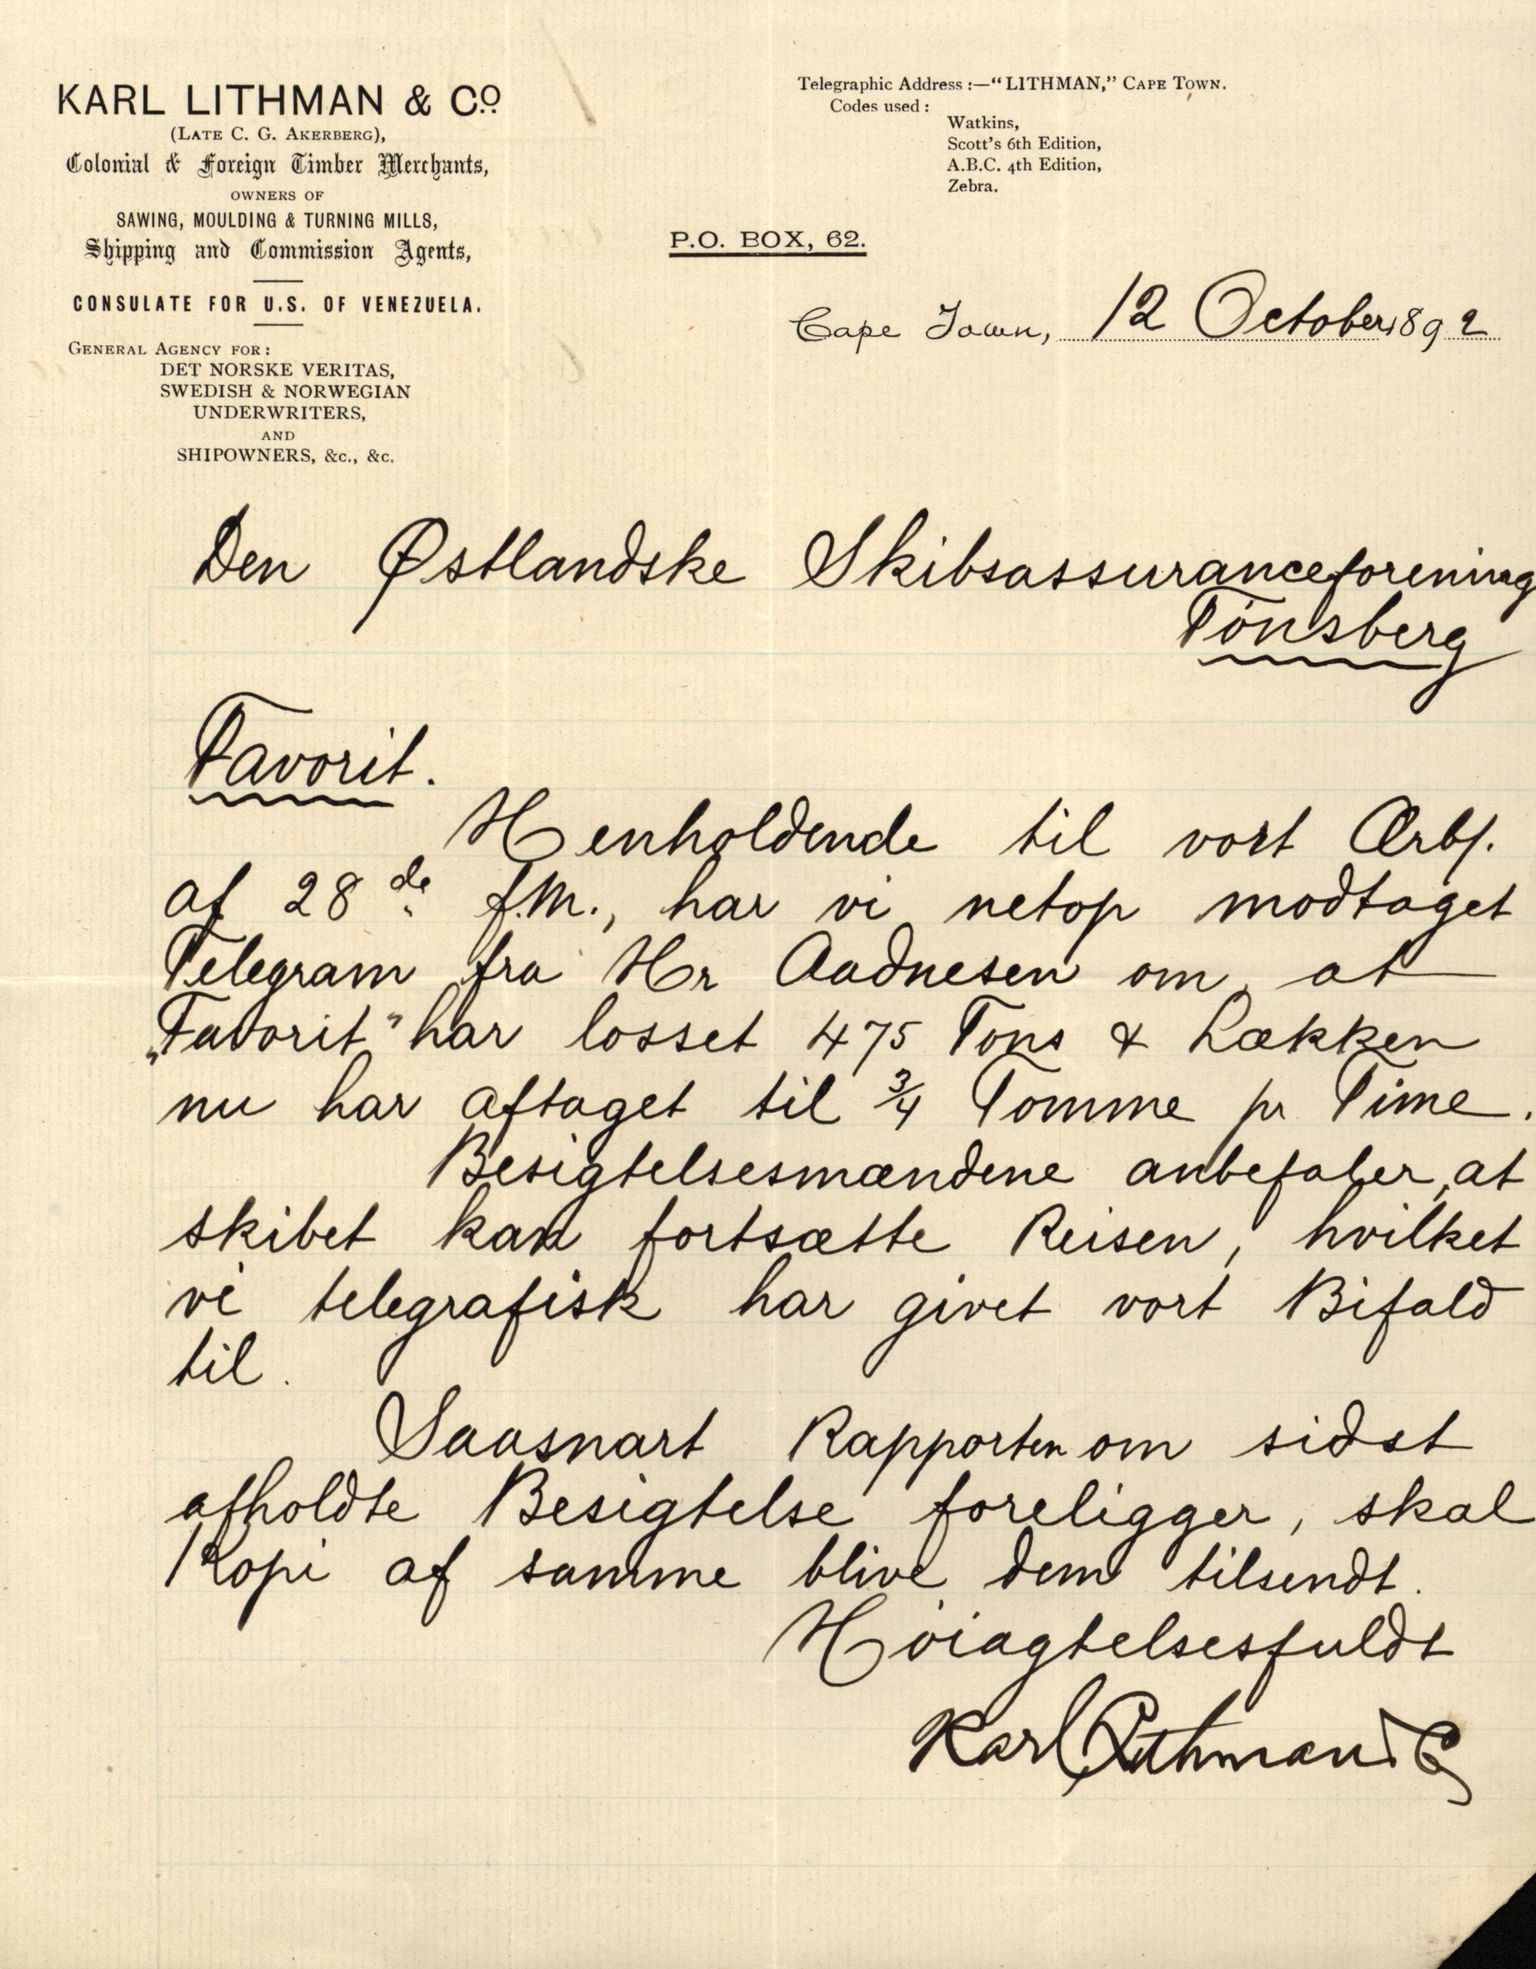 KARL LITHMAN & Co.
(LATE C. G. AKERBERG),
Colonial & Foreign Timber Merchants,
OWNERS OF
SAWING, MOULDING & TURNING MILLS,
Shipping and Commission Agents,
CONSULATE FOR U.S. OF VENEZUELA.
GENERAL AGENCY FOR:
DET NORSKE VERITAS,
SWEDISH & NORWEGIAN
UNDERWRITERS,
AND
SHIPOWNERS, &c., &c.
Telegraphic Address:—"LITHMAN," CAPE TOWN.
Codes used:
Watkins,
Scott's 6th Edition,
A.B.C. 4th Edition,
Zebra.
P.O. BOX, 62.
Cape Town, 12 October 1892
Den Østlandske Skibsassuranceforening
Tönsberg
Favorit.
Henholdende til vort Ærbf.
af 28de f.M., har vi netop modtaget
Telegram fra Hr Aadnesen om, at
„Favorit" har losset 475 Tons & Lækken
nu har aftaget til 3/4 Tomme pr Time.
Besigtelsesmændene anbefaler, at
skibet kan fortsætte Reisen, hvilket
vi telegrafisk har givet vort Bifald
til.
Saasnart Rapporten om sidst
afholdte Besigtelse foreligger, skal
Kopi af samme blive dem tilsendt.
Höiagtelsesfuldt
Karl Lithman & Co